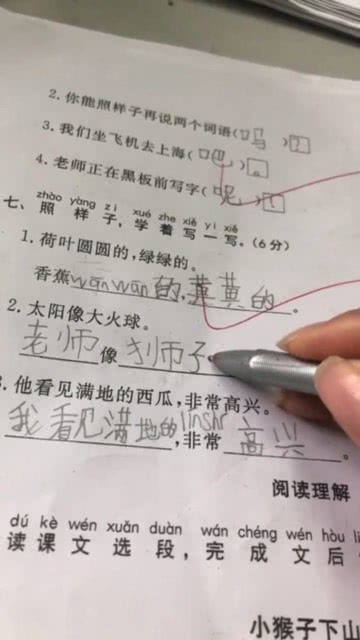 2.你能照样子再说两个词语(吗)?
3.我们坐飞机去上海(吧)。
4.老师正在黑板前写字(呢)!
zhào yàng zi xué zhe xiě yi xiě
七、照样子,学着写一写。(6分)
1.荷叶圆圆的,绿绿的。
香蕉wanwan的,黄黄的。
2.太阳像大火球。
老师像狮子
3.他看见满地的西瓜,非常高兴。
我看见满地的linshi,非常高兴。
阅读理解
dú kè wén xuǎn duàn wán chéng wén hòu
读课文选段,完成文后
小猴子下山